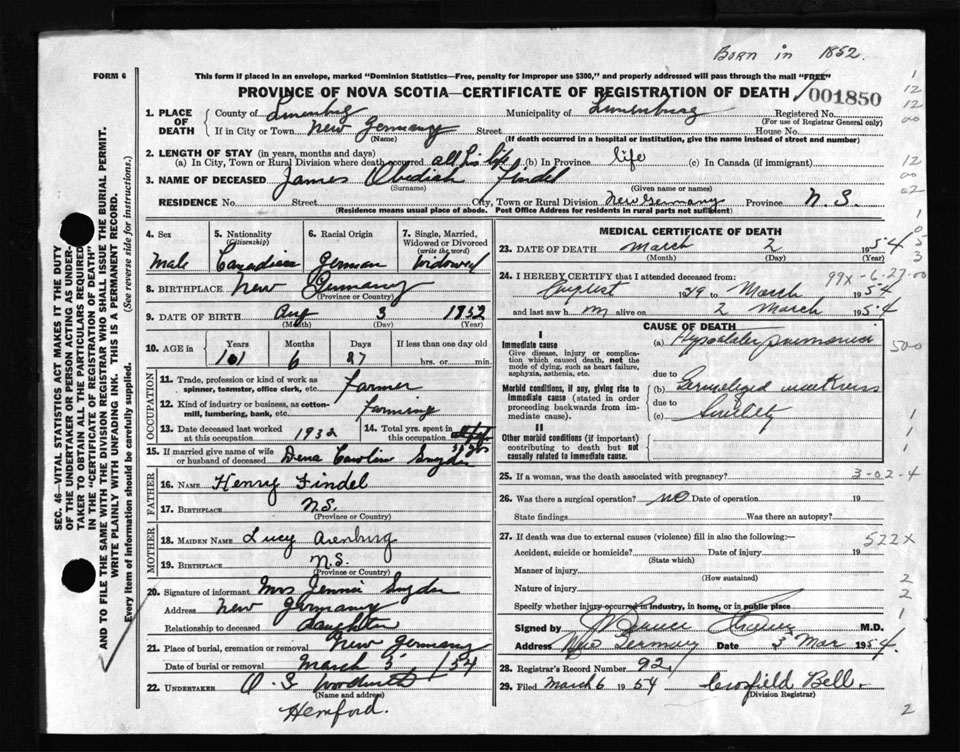 Born in 1852.
FORM 6
This form if placed in an envelope, marked "Dominion Statistics—Free, penalty for improper use $300," and properly addressed will pass through the mail "FREE"
PROVINCE OF NOVA SCOTIA—CERTIFICATE OF REGISTRATION OF DEATH
001850
1. PLACE OF DEATH
County of Lunenburg Municipality of Lunenburg Registered No.
(For use of Registrar General only)
If in City or Town New Germany Street House No.
(Name) (If death occurred in a hospital or institution, give the name instead of street and number)
2. LENGTH OF STAY (in years, months and days)
(a) In City, Town or Rural Division where death occurred all his life (b) In Province life (c) In Canada (if immigrant)
3. NAME OF DECEASED James Obediah Findel
(Surname) (Given name or names)
RESIDENCE No. Street City, Town or Rural Division New Germany Province N.S.
(Residence means usual place of abode. Post Office Address for residents in rural parts not sufficient)
4. Sex
Male
5. Nationality
(Citizenship)
Canadian
6. Racial Origin
German
7. Single, Married, Widowed or Divorced
(write the word)
Widowed
8. BIRTHPLACE New Germany
(Province or Country)
9. DATE OF BIRTH Aug 3 1852
(Month) (Day) (Year)
10. AGE in Years Months Days If less than one day old
101 6 27 hrs. or min.
OCCUPATION
11. Trade, profession or kind of work as spinner, teamster, office clerk, etc. Farmer
12. Kind of industry or business, as cotton-mill, lumbering, bank, etc. Farming
13. Date deceased last worked at this occupation 1932
14. Total yrs. spent in this occupation
15. If married give name of wife or husband of deceased Dena Caroline Snyder
FATHER
16. NAME Henry Findel
17. BIRTHPLACE N.S.
(Province or Country)
MOTHER
18. MAIDEN NAME Lucy Arenburg
19. BIRTHPLACE N.S.
(Province or Country)
20. Signature of informant Mrs Jennie Snyder
Address New Germany
Relationship to deceased daughter
21. Place of burial, cremation or removal New Germany
Date of burial or removal March 5 1954
22. UNDERTAKER O. S. Woodworth
(Name and address)
Hemford.
MEDICAL CERTIFICATE OF DEATH
23. DATE OF DEATH March 2 1954
(Month) (Day)
24. I HEREBY CERTIFY that I attended deceased from:
99x -6-27-00
August 1949 to March 1954
and last saw him alive on 2 March 1954
CAUSE OF DEATH
I
Immediate cause
Give disease, injury or complication which caused death, not the mode of dying, such as heart failure, asphyxia, asthenia, etc.
(a) Hypostatic pneumonia
500
due to
Morbid conditions, if any, giving rise to immediate cause (stated in order proceeding backwards from immediate cause).
(b) Generalized weakness
due to
(c) Senility
II
Other morbid conditions (if important) contributing to death but not causally related to immediate cause.
25. If a woman, was the death associated with pregnancy? 3-02-4
26. Was there a surgical operation? no Date of operation 19
State findings Was there an autopsy?
27. If death was due to external causes (violence) fill in also the following:—
522x
Accident, suicide or homicide? Date of injury 19
(State which)
Manner of injury
(How sustained)
Nature of injury
Specify whether injury occurred in industry, in home, or in public place
Signed by M.D.
Address New Germany Date 3 Mar 1954
28. Registrar's Record Number 92
29. Filed March 6 1954 Crofield Bell
(Division Registrar)
SEC. 46—VITAL STATISTICS ACT MAKES IT THE DUTY
OF THE UNDERTAKER OR PERSON ACTING AS UNDER-
TAKER TO OBTAIN ALL THE PARTICULARS REQUIRED
IN THE "CERTIFICATE OF REGISTRATION OF DEATH"
AND TO FILE THE SAME WITH THE DIVISION REGISTRAR WHO SHALL ISSUE THE BURIAL PERMIT.
WRITE PLAINLY WITH UNFADING INK. THIS IS A PERMANENT RECORD.
Every item of information should be carefully supplied. (See reverse side for instructions.)